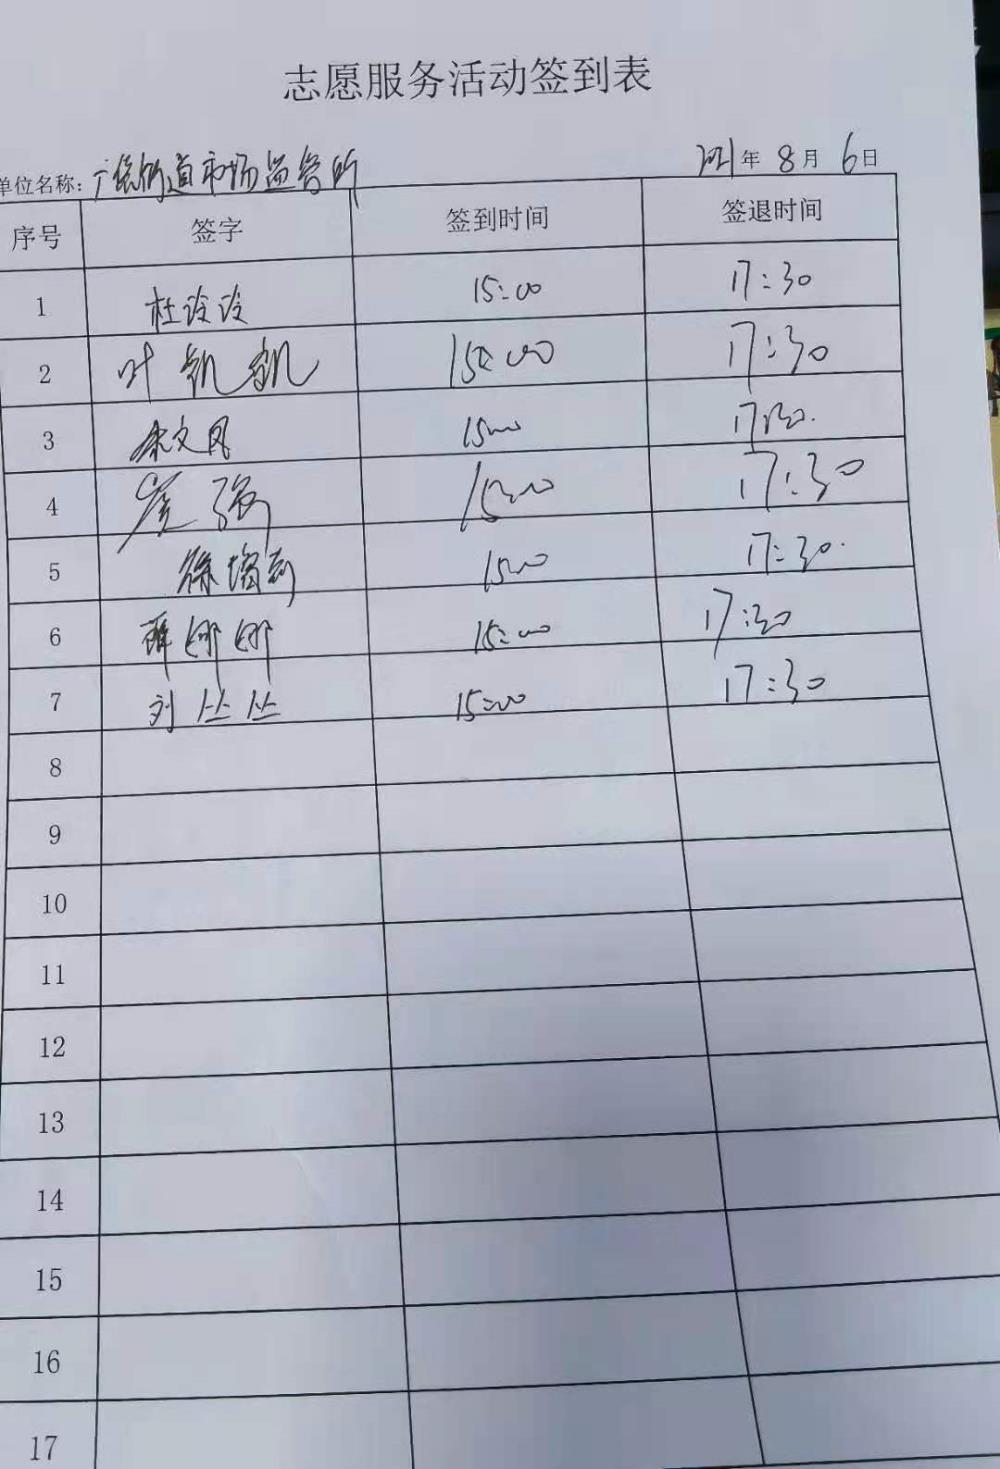 志愿服务活动签到表
单位名称: 街道市场监管所 2021年 8月 6日
序号 签字 签到时间 签退时间
1 杜泠泠 15:00 17:30
2 叶凯凯 15:00 17:30
3 文凤 15:00 17:30.
4 崔强 15:00 17:30
5 徐增 15:00 17:30.
6 薛娜娜 15:00 17:30
7 刘丛丛 15:00 17:30
8
9
10
11
12
13
14
15
16
17